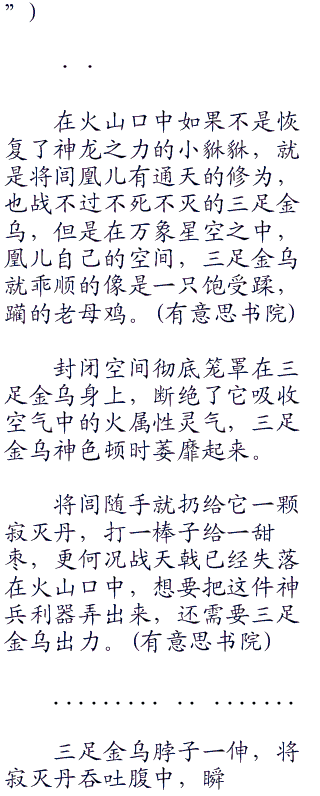 ”）
．．
在火山口中如果不是恢
复了神龙之力的小貅貅，就
是将闾凰儿有通天的修为，
也战不过不死不灭的三足金
乌，但是在万象星空之中，
凰儿自己的空间，三足金乌
就乖顺的像是一只饱受蹂，
躏的老母鸡。(有意思书院)
封闭空间彻底笼罩在三
足金乌身上，断绝了它吸收
空气中的火属性灵气，三足
金乌神色顿时萎靡起来。
将闾随手就扔给它一颗
寂灭丹，打一棒子给一甜
枣，更何况战天戟已经失落
在火山口中，想要把这件神
兵利器弄出来，还需要三足
金乌出力。(有意思书院)
......... .. .......
三足金乌脖子一伸，将
寂灭丹吞吐腹中，瞬